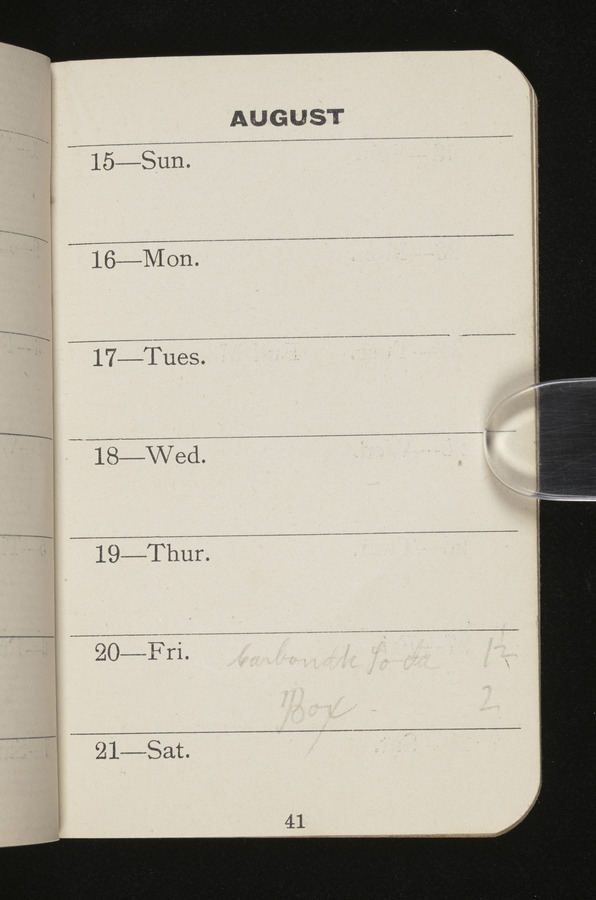 AUGUST
15—Sun.
16—Mon.
17—Tues.
18—Wed.
19—Thur.
20—Fri. Carbonate Soda 1½
Box - 2
21—Sat.
41